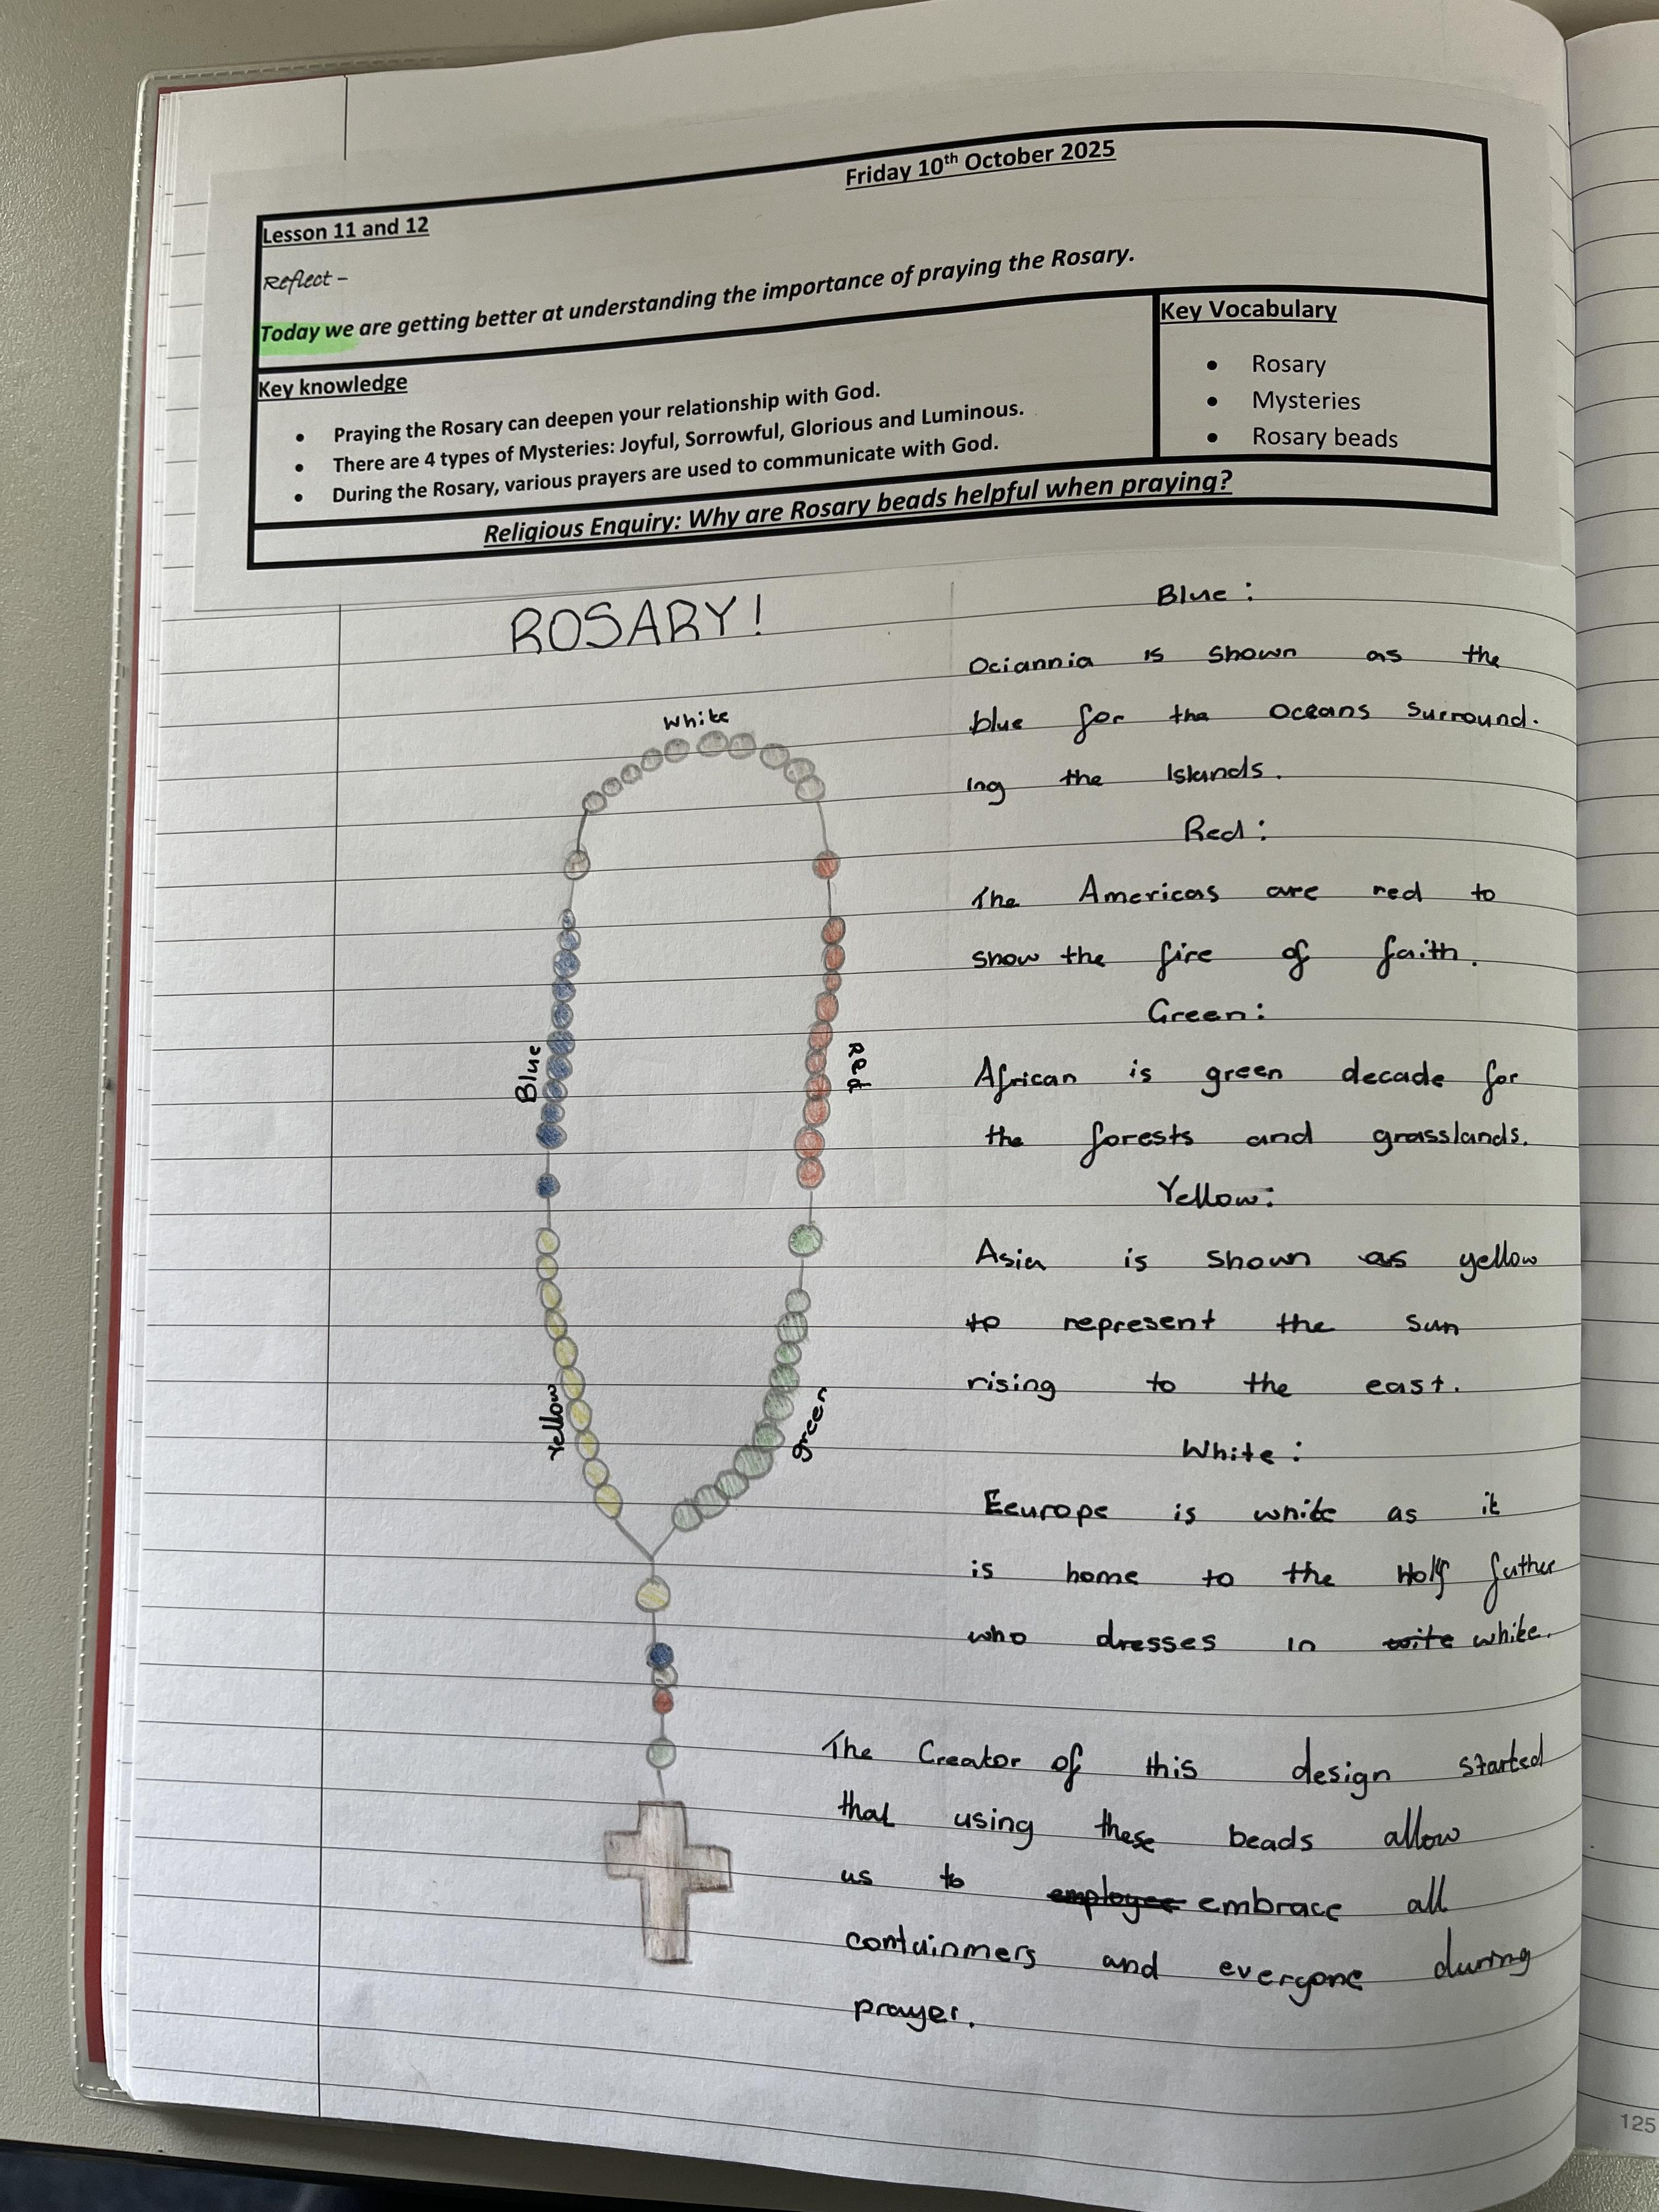 Friday 10th October 2025
Lesson 11 and 12
Reflect –
Today we are getting better at understanding the importance of praying the Rosary.
Key knowledge
• Praying the Rosary can deepen your relationship with God.
• There are 4 types of Mysteries: Joyful, Sorrowful, Glorious and Luminous.
• During the Rosary, various prayers are used to communicate with God.
Key Vocabulary
• Rosary
• Mysteries
• Rosary beads
Religious Enquiry: Why are Rosary beads helpful when praying?
ROSARY!
White
Blue
Red
Yellow
green
Blue:
Ociannia is shown as the
blue for the oceans surround-
ing the Islands.
Red:
The Americas are red to
show the fire of faith.
Green:
African is green decade for
the forests and grasslands.
Yellow:
Asia is shown as yellow
to represent the sun
rising to the east.
White:
Eeurope is white as it
is home to the Holy father
who dresses in wite white.
The Creator of this design started
that using these beads allow
us to employee embrace all
contuinmers and everyone during
prayer.
125